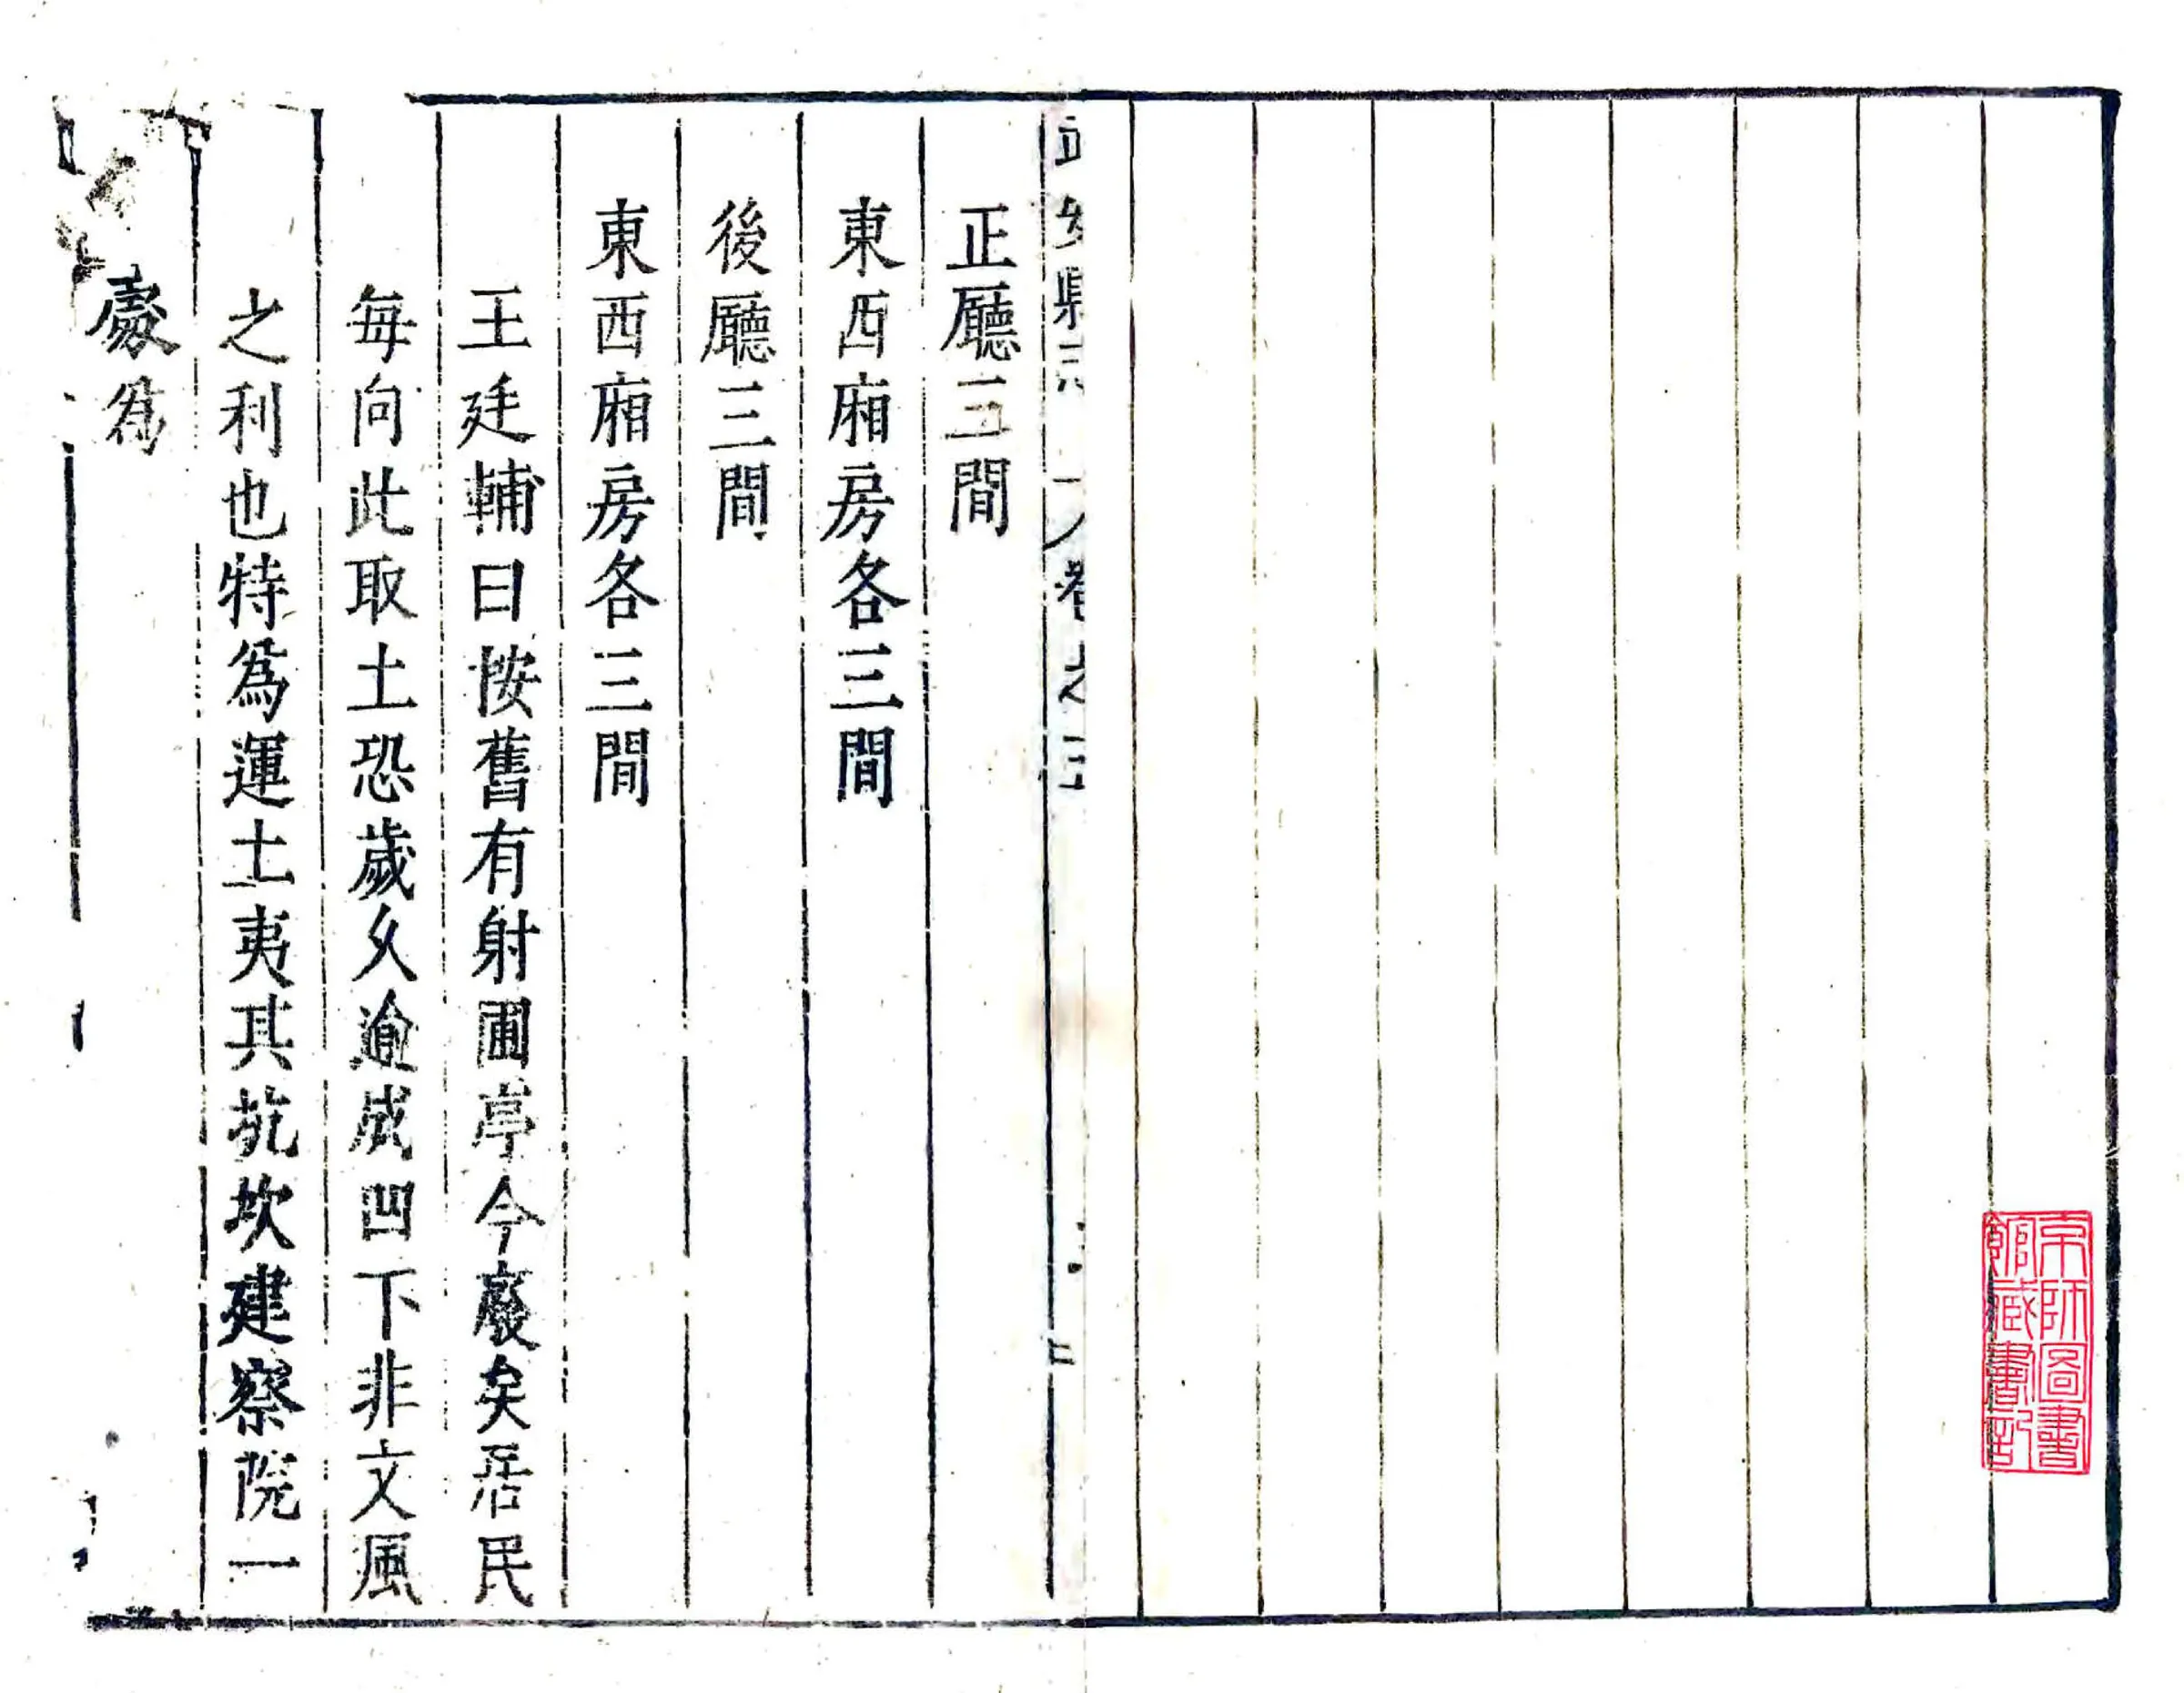 京師圖書
館藏書記
安縣志 卷之
正廳三間
東西廂房各三間
後廳三間
東西廂房各三間
王廷輔曰按舊有射圃亭今廢矣居民
每向此取土恐歲久逾成凹下非文風
之利也特爲運土夷其坑坎建察院一
處爲